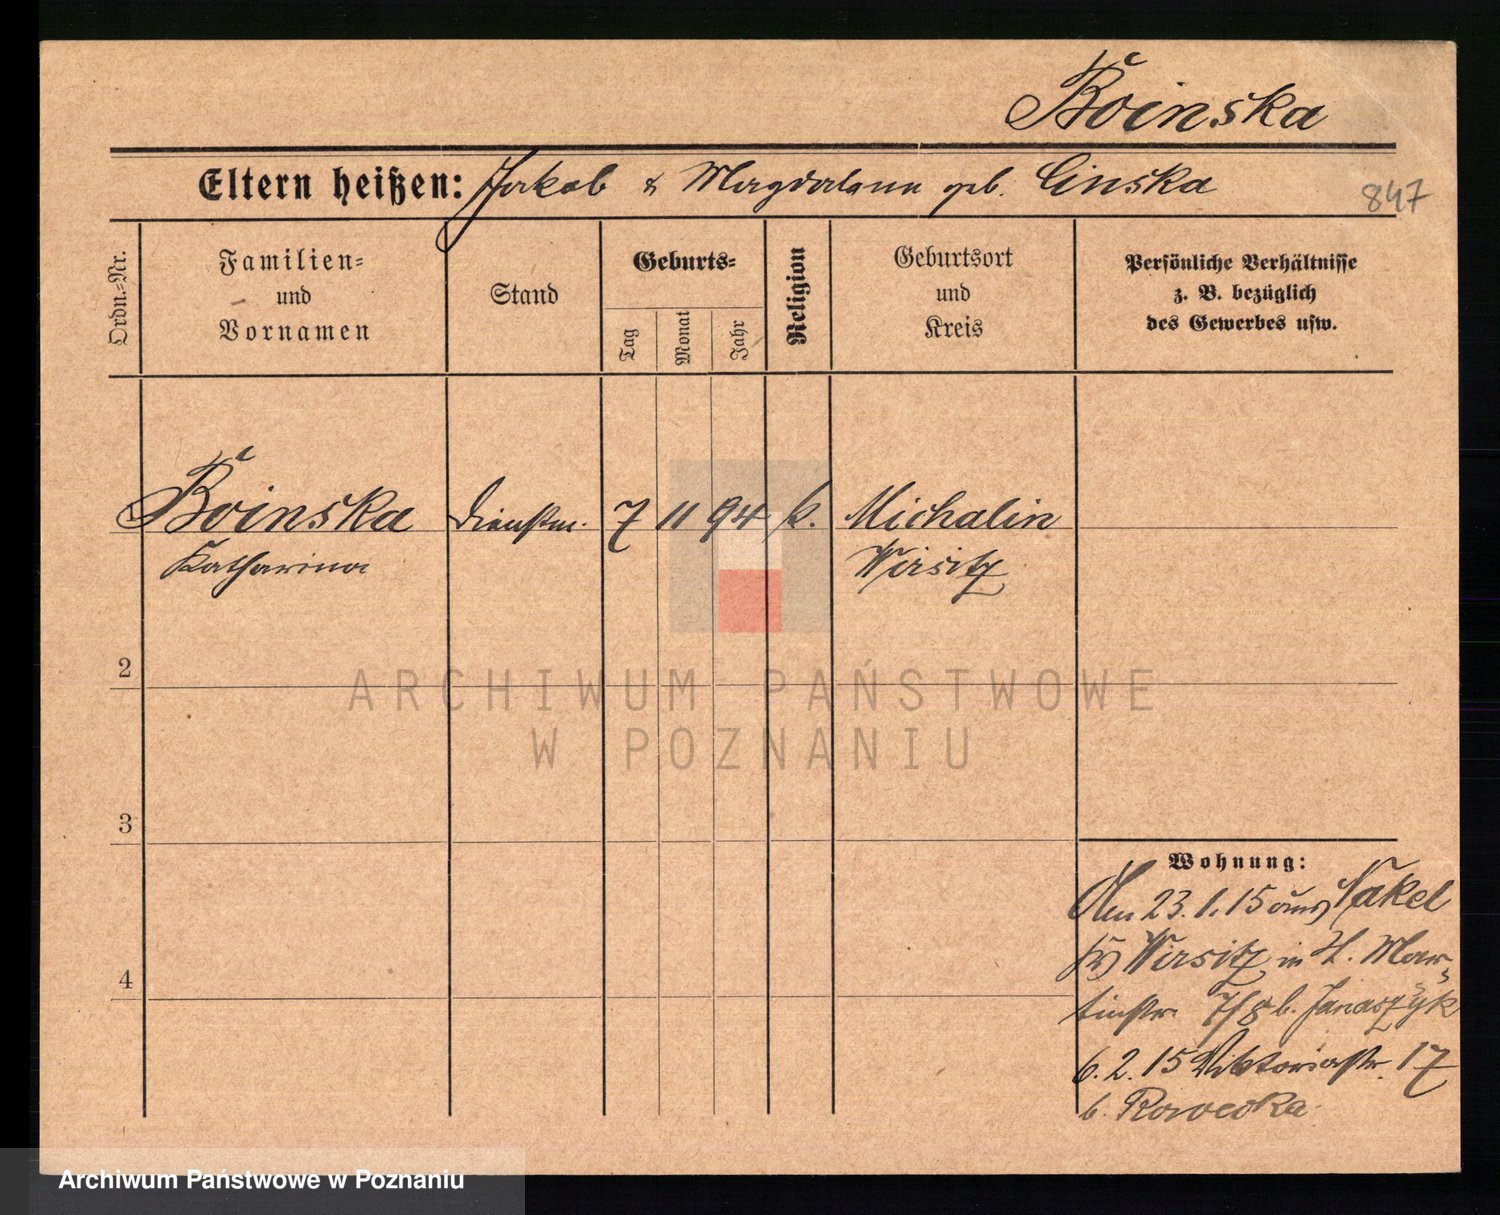 Boinska
Eltern heißen: Jakob & Magdalena geb. Cinska
847
Ordn.-Nr.
Familien-
und
Vornamen
Stand
Geburts-
Tag
Monat
Jahr
Religion
Geburtsort
und
Kreis
Persönliche Verhältnisse
z. B. bezüglich
des Gewerbes usw.
Boinska Dienstm. 7 11 94 k. Michalin
Katharina Wirsitz
2
ARCHIWUM PAŃSTWOWE
W POZNANIU
3
Wohnung:
Am 23. 1. 15 aus Nakel
Wirsitz in St. Mar-
4
tinstr. 7/8 b. Janaszyk
6. 2. 15 Viktoriastr. 17
b. Rowecka
Archiwum Państwowe w Poznaniu